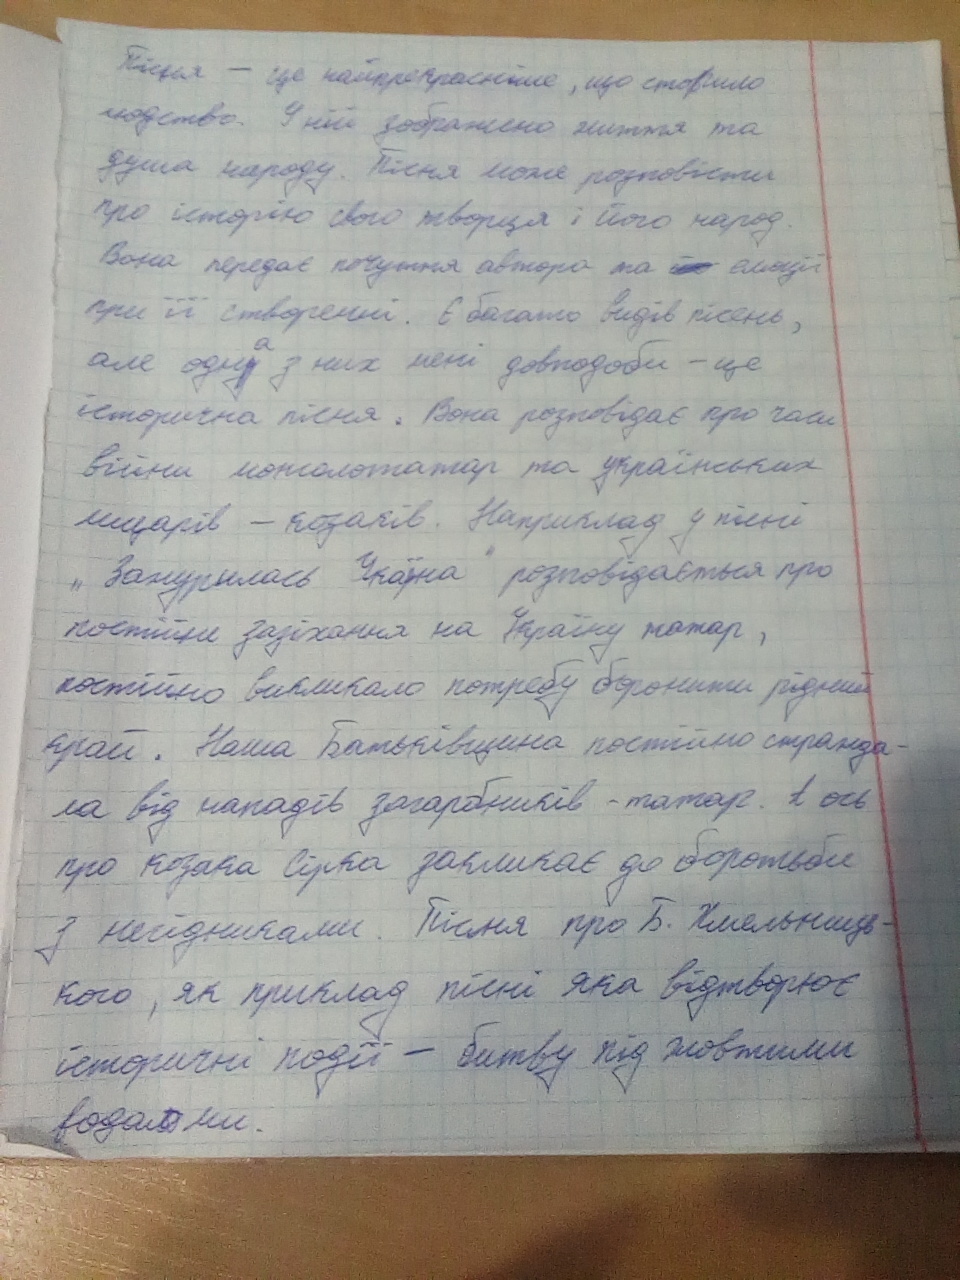 Пісня – це найпрекрасніше, що створило
людство. У ній зображено життя та
душа народу. Пісня може розповісти
про історію свого творця і його народ.
Вона передає почуття автора та емоції
при її створенні. Є багато видів пісень,
але одна з них мені довподоби – це
історична пісня. Вона розповідає про часи
війни монголотатар та українських
лицарів – козаків. Наприклад у пісні
„Зажурилась Україна" розповідається про
постійне зазіхання на Україну татар,
постійно викликало потребу боронити рідний
край. Наша Батьківщина постійно стражда-
ла від нападів загарбників - татар. А ось
про козака Сірка закликає до боротьби
з негідниками. Пісня про Б. Хмельниць-
кого, як приклад пісні яка відтворює
історичні події – битву під жовтими
водами.